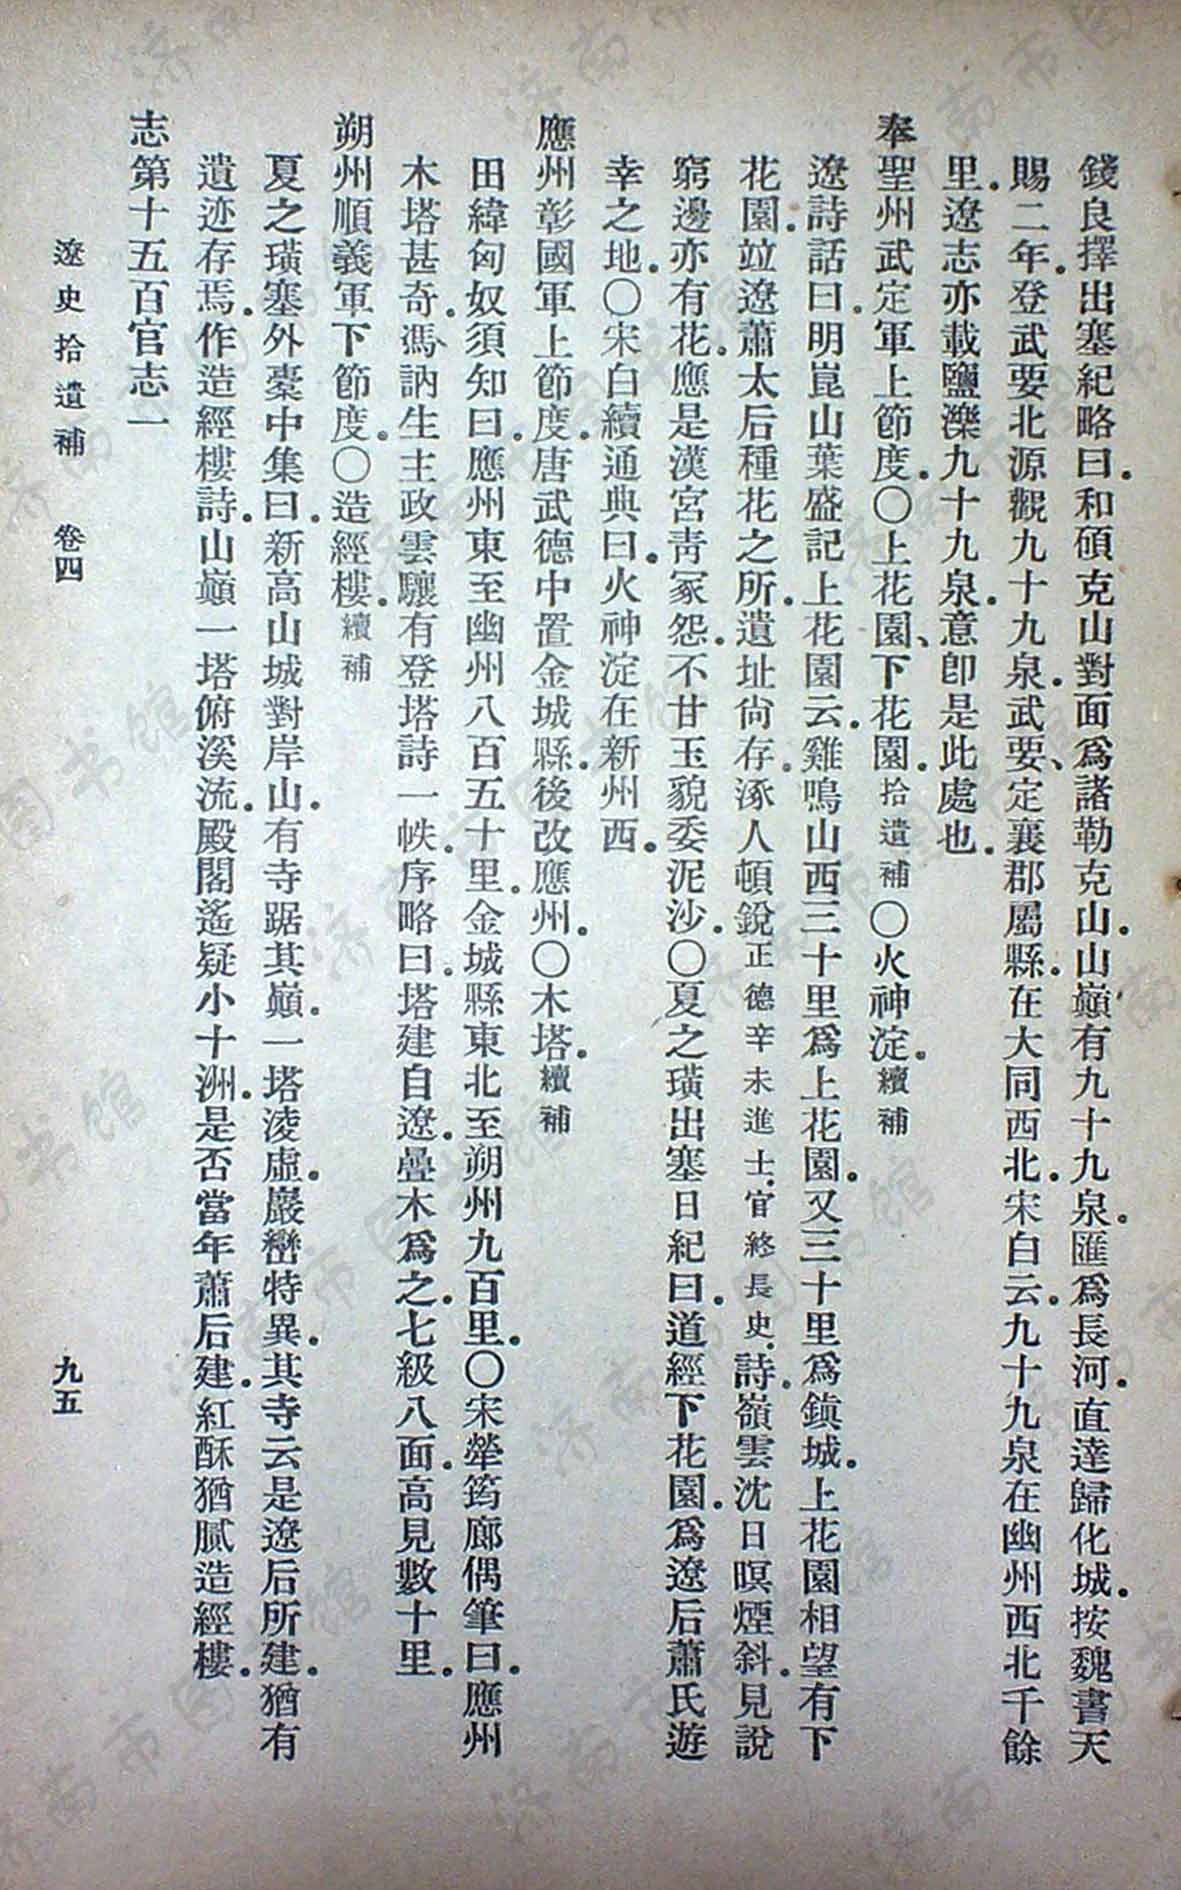 錢良擇出塞紀略曰。和碩克山對面爲諸勒克山。山巔有九十九泉。匯爲長河。直達歸化城。按魏書天
賜二年。登武要北源觀九十九泉。武要、定襄郡屬縣。在大同西北。宋白云。九十九泉在幽州西北千餘
里。遼志亦載鹽濼九十九泉。意卽是此處也。
奉聖州武定軍上節度。〇上花園、下花園。拾遺補〇火神淀。續補
遼詩話曰。明崑山葉盛記上花園云。雞鳴山西三十里爲上花園。又三十里爲鎮城。上花園相望有下
花園。竝遼蕭太后種花之所。遺址尙存。涿人頓銳正德辛未進士。官終長史。詩。嶺雲沈日暝煙斜。見說
窮邊亦有花。應是漢宮靑冢怨。不甘玉貌委泥沙。〇夏之璜出塞日紀曰。道經下花園。爲遼后蕭氏遊
幸之地。〇宋白續通典曰。火神淀在新州西。
應州彰國軍上節度。唐武德中置金城縣。後改應州。〇木塔。續補
田緯匈奴須知曰。應州東至幽州八百五十里。金城縣東北至朔州九百里。〇宋犖筠廊偶筆曰。應州
木塔甚奇。馮訥生主政雲驤有登塔詩一帙。序略曰。塔建自遼。疊木爲之。七級八面。高見數十里。
朔州順義軍下節度。〇造經樓。續補
夏之璜塞外橐中集曰。新高山城對岸山。有寺踞其巔。一塔淩虛。巖巒特異。其寺云是遼后所建。猶有
遺迹存焉。作造經樓詩。山巔一塔俯溪流。殿閣遙疑小十洲。是否當年蕭后建。紅酥猶膩造經樓。
志第十五百官志一
遼史拾遺補 卷四 九五